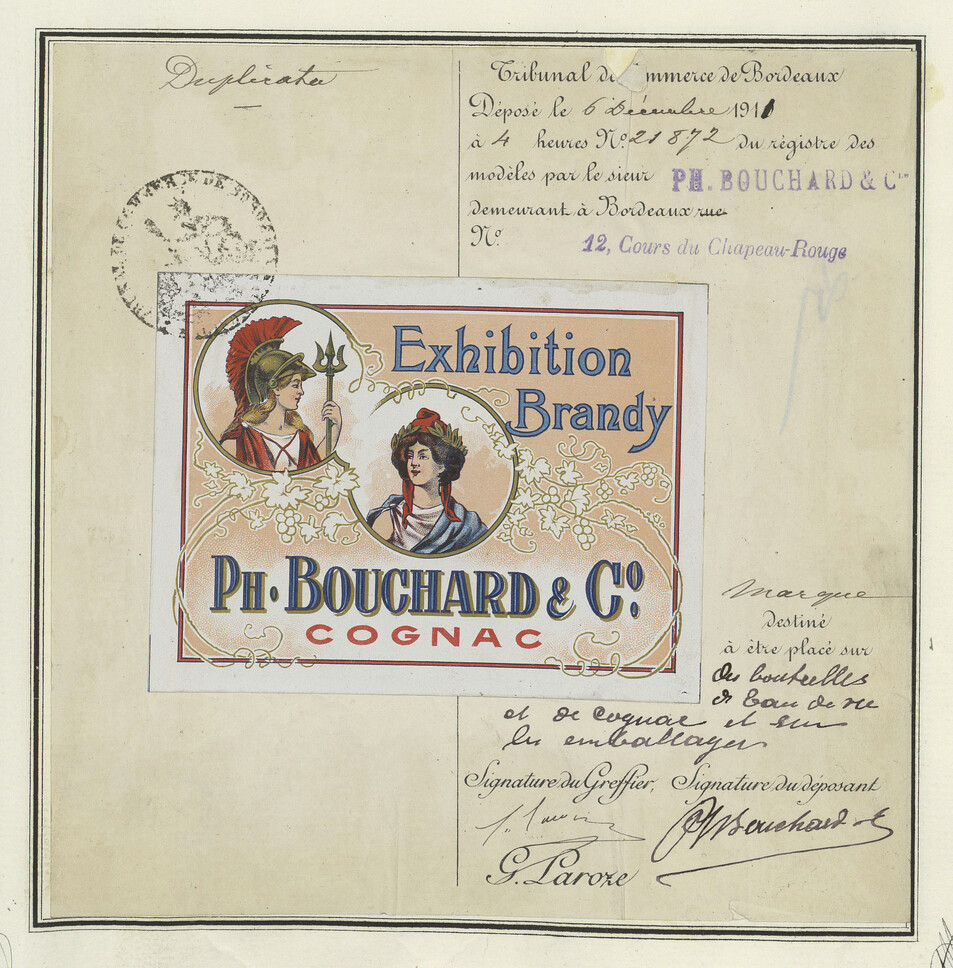 Duplicata
Tribunal de Commerce de Bordeaux
Déposé le 6 Décembre 1911
à 4 heures Nº 21872 du régistre des
modèles par le sieur PH. BOUCHARD & Cie
demeurant à Bordeaux rue
Nº 12, Cours du Chapeau-Rouge
Exhibition
Brandy
PH. BOUCHARD & Cº.
COGNAC
marque
destiné
à être placé sur
des bouteilles
de eau de vie
et de cognac et sur
les emballages
Signature du Greffier, Signature du déposant
Ph Bouchard
G. Laroze